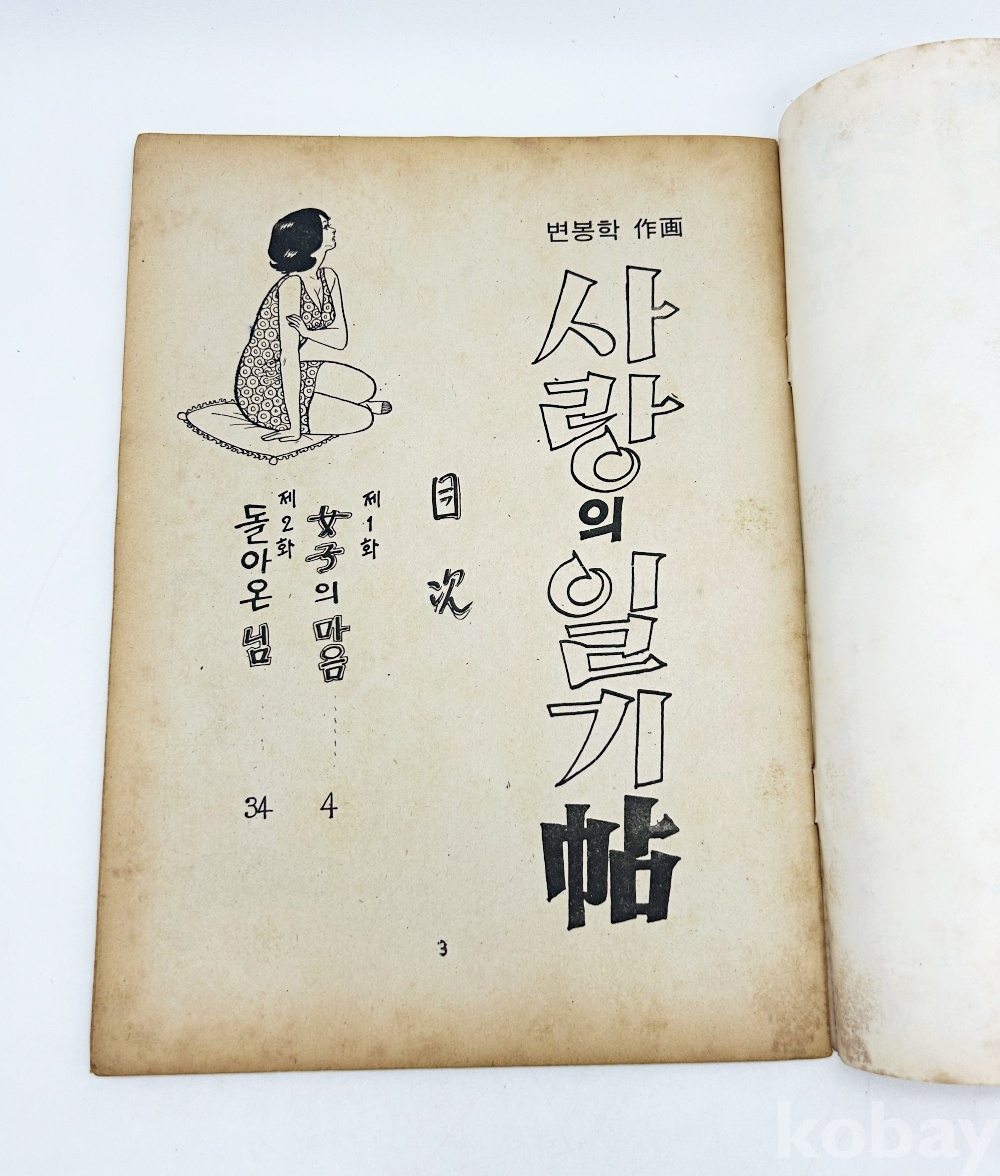 변봉학 作画
사랑의 일기帖
目次
제1화
女子의 마음 4
제2화
돌아온 님 34
3
kobay